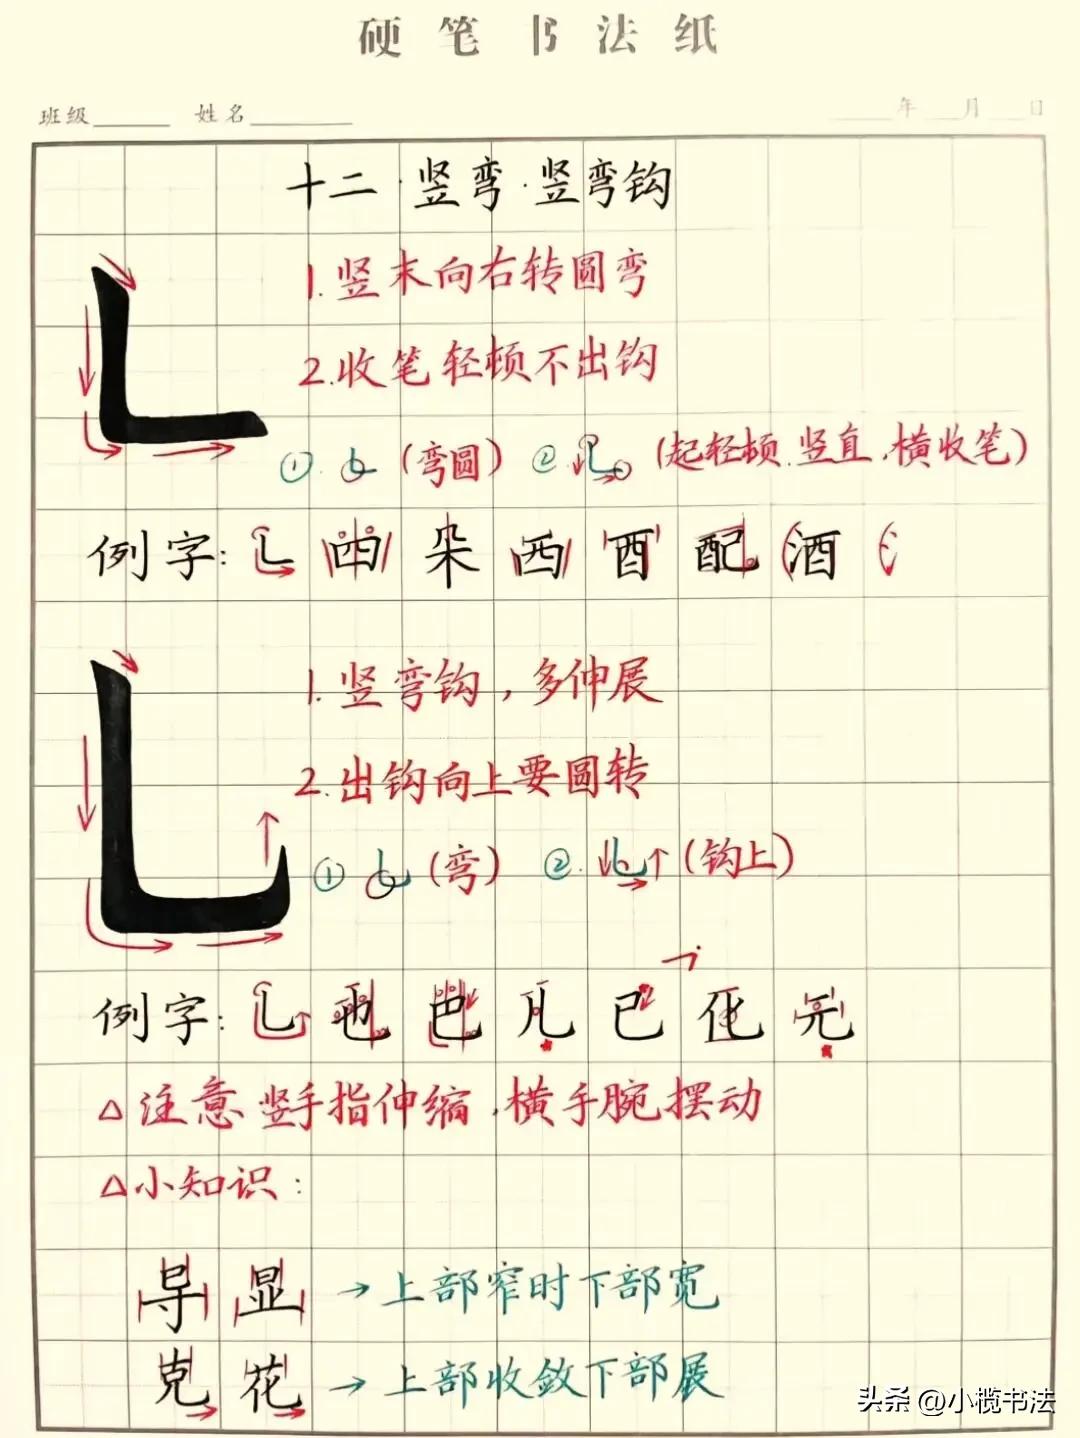 硬笔书法纸
班级 姓名 年 月 日
十二·竖弯·竖弯钩
1.竖末向右转圆弯
2.收笔轻顿不出钩
①.(弯圆) ②.(起轻顿.竖直.横收笔)
例字: 乚 四 朵 西 酉 配 酒
1.竖弯钩,多伸展
2.出钩向上要圆转
① (弯) ②.(钩上)
例字: 乚 也 巴 儿 已 化 元
△注意竖手指伸缩,横手腕摆动
△小知识:
导 显 →上部窄时下部宽
克 花 →上部收敛下部展
头条 @小榄书法